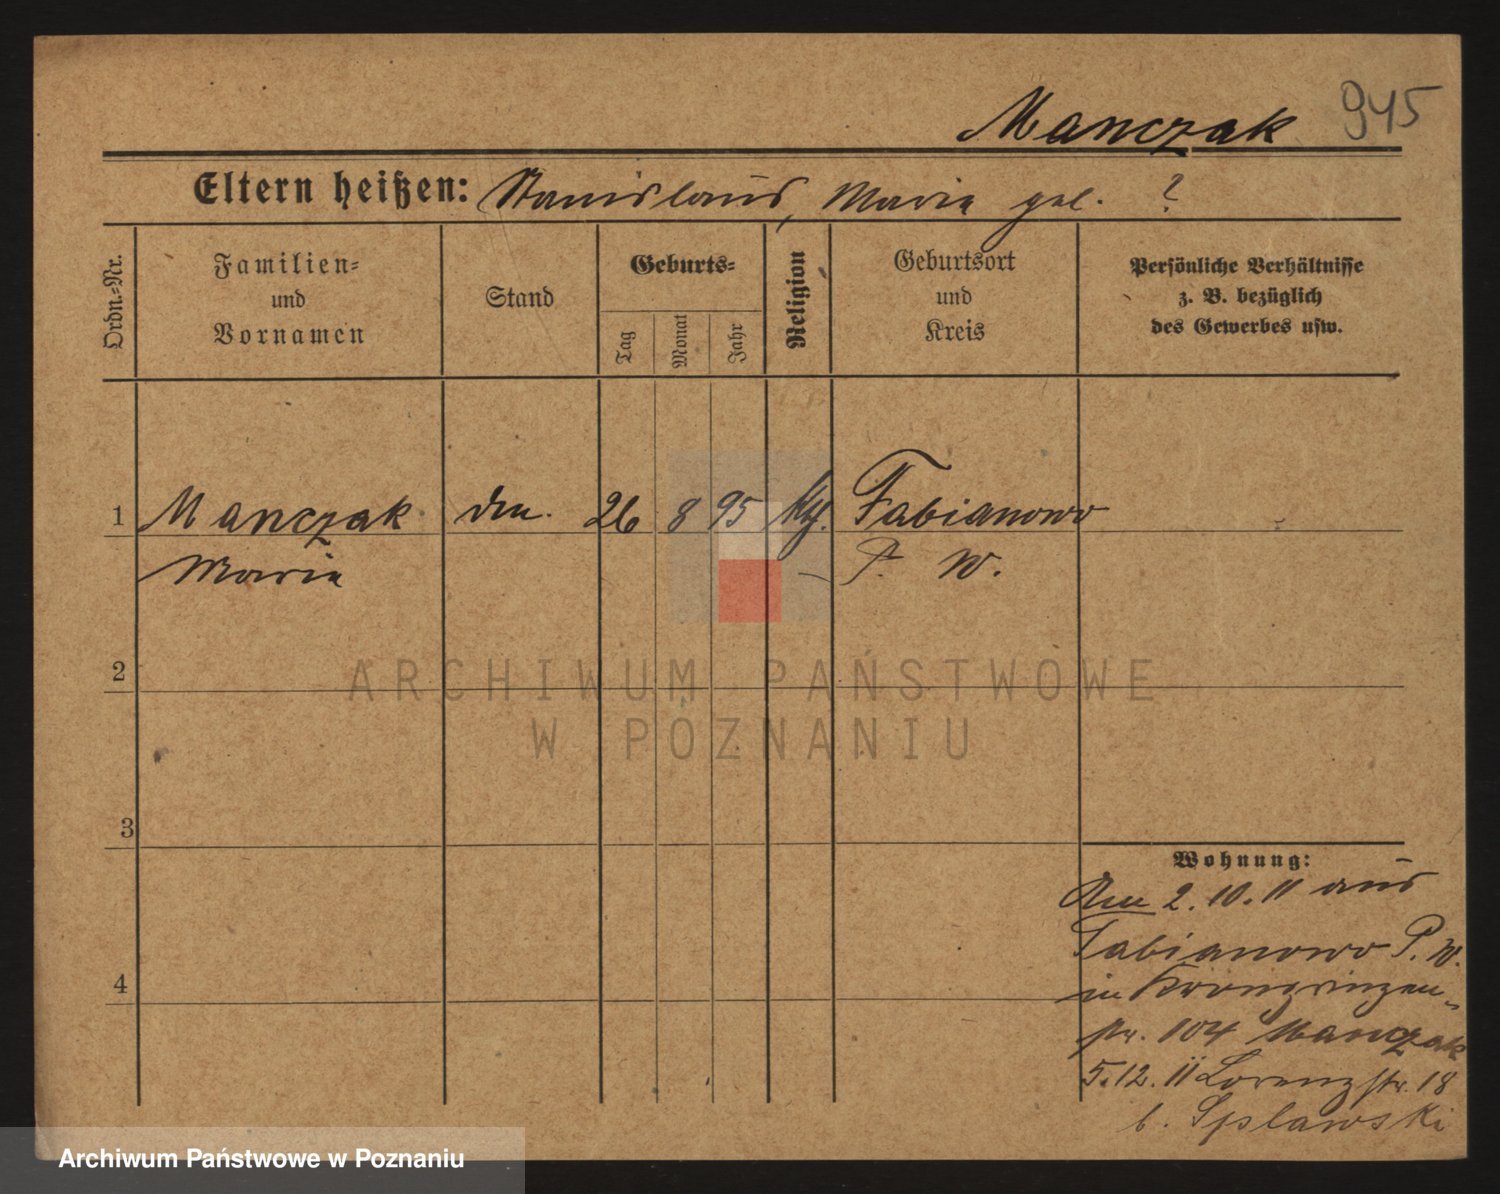 Manczak 945
Eltern heißen: Stanislaus, Maria geb. ?
Ordn.-Nr.
Familien-
und
Vornamen
Stand
Geburts-
Tag
Monat
Jahr
Religion
Geburtsort
und
Kreis
Persönliche Verhältnisse
z. B. bezüglich
des Gewerbes usw.
1 Manczak 26 8 95 Fabianowo
Maria P. W.
2
3
4
Wohnung:
Am 2.10.11 aus
Fabianowo P. W.
in Kronprinzen-
str. 104 Manczak
5.12.11 Lorenzstr. 18
b. Splawski
ARCHIWUM PAŃSTWOWE
W POZNANIU
Archiwum Państwowe w Poznaniu